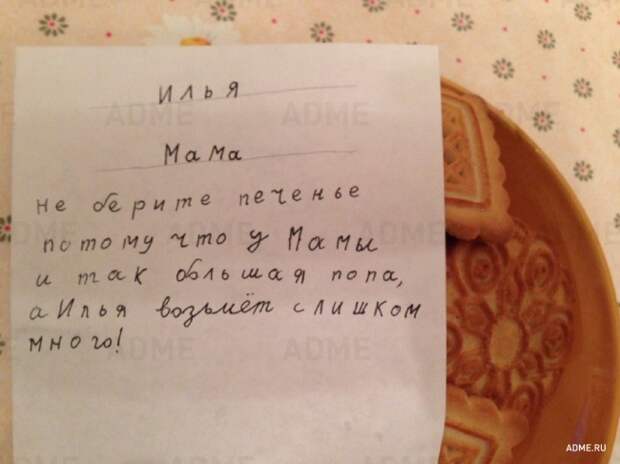 Илья
Мама
не берите печенье
потому что у Мамы
и так большая попа,
а Илья возьмёт слишком
много!
ADME
ADME
ADME
ADME
ADME.RU